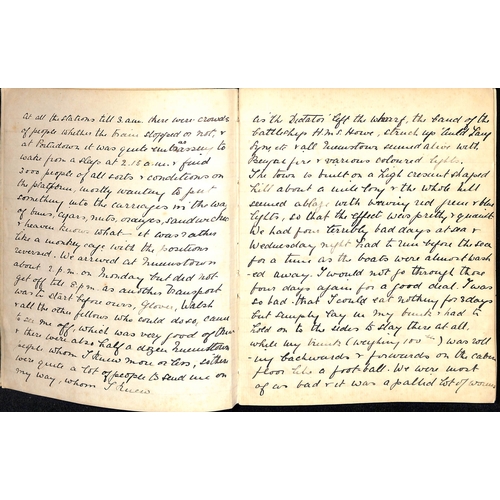 at all the stations till 3. a.m. there were crowds
of people whether the train stopped or not, &
at Portadown it was quite embarrassing to
wake from a sleep at 2.15 a.m. & find
3000 people of all sorts & conditions on
the platform, mostly wanting to put
something into the carriages in the way
of buns, cigars, nuts, oranges, sandwiches
& heaven knows what — it was rather
like a monkey cage with the positions
reversed. We arrived at Queenstown
about 2 p.m. on Monday but did not
get off till 8 p.m. as another transport
was to start before ours, Glover, Walsh
& all the other fellows who could do so, came
to see me off, which was very good of them
& there were also half a dozen Queenstown
people whom I knew more or less, so there
were quite a lot of people to send me on
my way, whom I knew
As the Dictator left the wharf, the band of the
battleship H.M.S. Howe, struck up 'Auld Lang
Syne, etc & all Queenstown seemed alive with
Bengal fire & various coloured lights.
The town is built on a high crescent shaped
hill about a mile long & the whole hill
seemed ablaze with moving red green & blue
lights, so that the effect was pretty & quaint
We had four terribly bad days at sea &
Wednesday night had to run before the sea
for a time as the boats were almost wash
-ed away. I would not go through those
four days again for a good deal. I was
so bad that I could eat nothing for 3 days
but simply lay in my bunk & had to
hold on to the sides to stay there at all.
while my trunk (weighing 100 lbs) was roll
-ing backwards & forwards on the cabin
floor like a football. We were most
of us bad & it was a pallid lot of worms